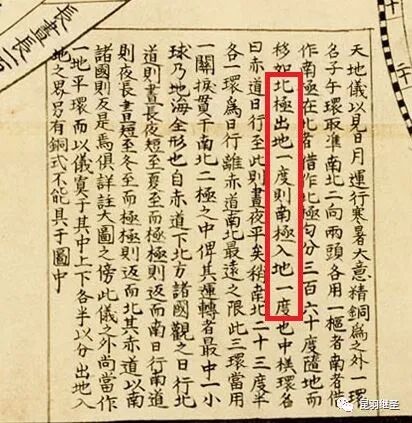 天地儀以見日月運行寒暑大意精銅爲之外一環
名子午環取準南北二向兩頭各用一樞者南者借
作南極在北者借作北極勻分三百六十度隨地而
移如北極出地一度則南極入地一度也中橫環名
曰赤道日行至此則晝夜平矣稍南北二十三度半
各一環爲日行離赤道南北最遠之限此三環當用
一關捩貫于南北二極之中俾其運轉者最中一小
球乃地海全形也自赤道下北方諸國觀之日行北
道則晝長夜短至夏至而極極則返而南日行南道
則夜長晝短至冬至而極極則返而北其赤道以南
諸國則反是焉俱詳註大圖之傍此儀之外尚當作
一地平環而以儀寘于其中上下各半以分出地入
地之界另有銅式不能具于圖中
長晝長一
昆羽继圣